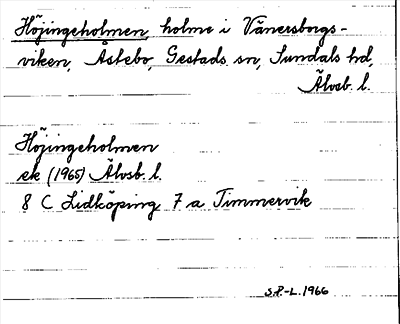 Höjingeholmen, holme i Vänersborgs-
viken, Åstebo, Gestads sn, Sundals hd,
Älvsb. l.
Höjingeholmen
ek (1965) Älvsb. l.
8 C Lidköping 7 a Timmervik
S.P.-L. 1966